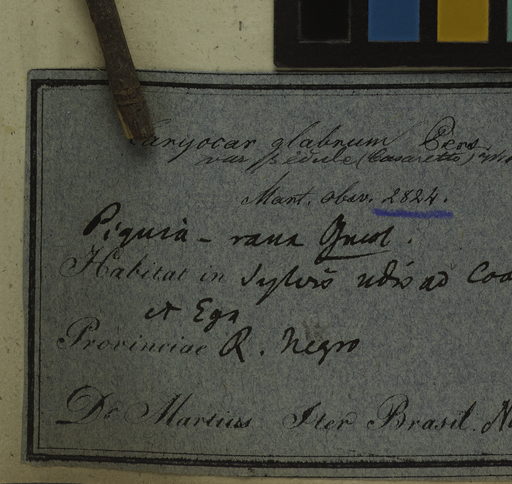 Caryocar glabrum Pers.
var β edule (Casaretto)
Mart. obsv. 2824.
Piquia - rana
Habitat in Sylvis udis ad Coa
et Ega
Provinciae R. Negro
Dr. Martius Iter Brasil.